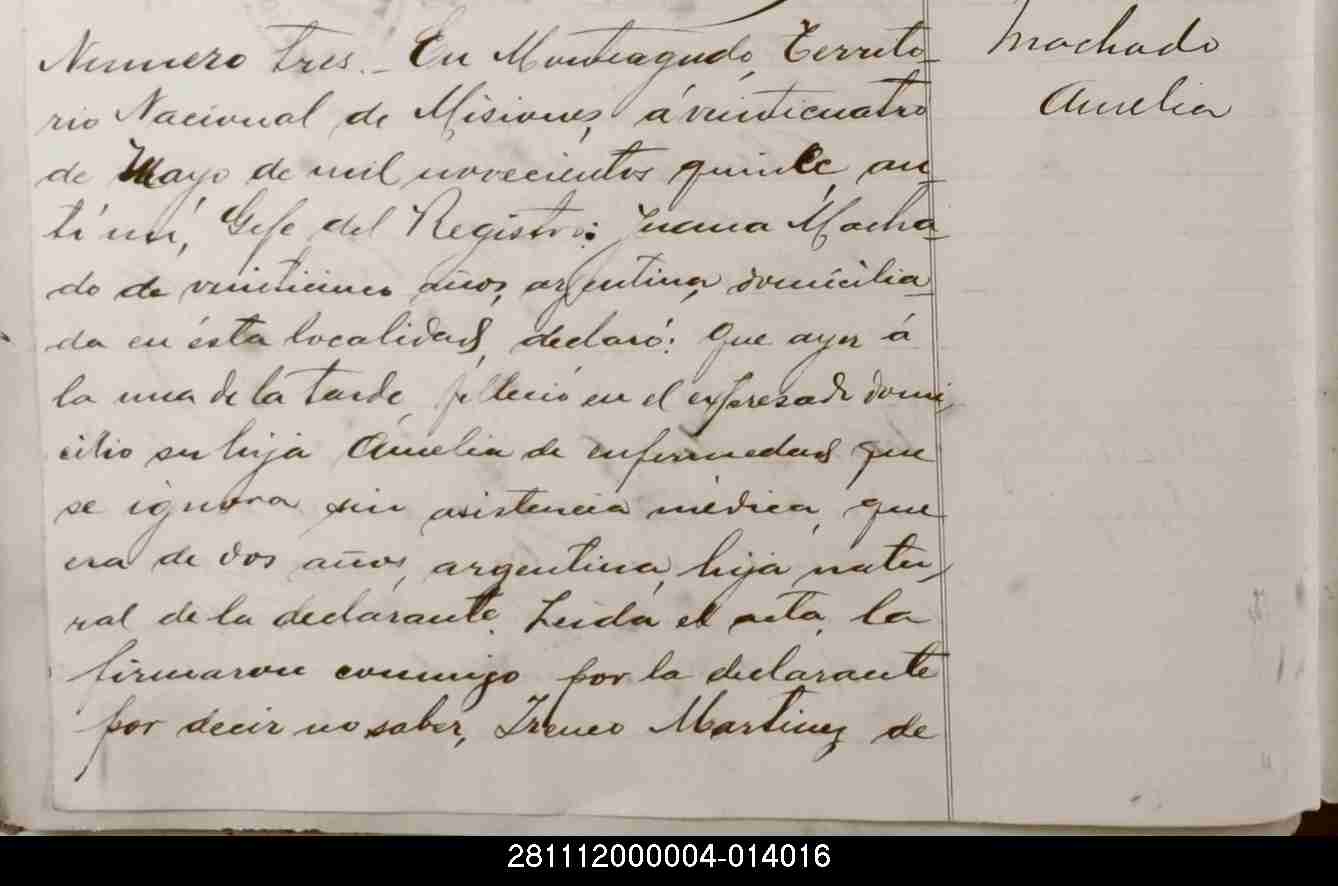 Numero tres.- En Monteagudo, Territo-
rio Nacional de Misiones, á veinticuatro
de Mayo de mil novecientos quince, an-
tí mí, Gefe del Registro: Juana Macha-
do de veinticinco años, argentina, domicilia-
da en ésta localidad, declaró: Que ayer á
la una de la tarde, fallecio en el expresado domi-
cilio su hija Aurelia de enfermedad que
se ignora sin asistencia médica, que
era de dos años, argentina, hija natu-
ral de la declarante. Leida el acta, la
firmaron conmigo por la declarante
por decir no saber, Ireneo Martinez de
Machado
Aurelia
281112000004-014016